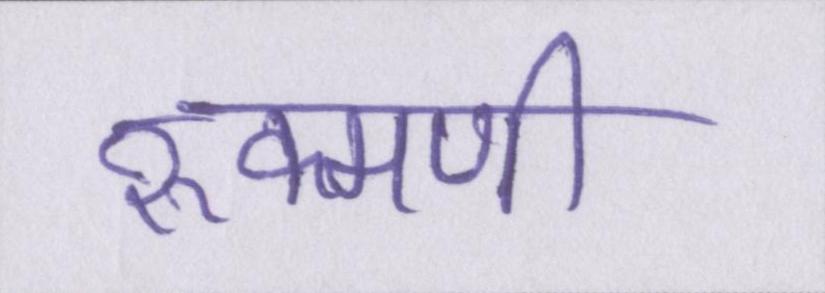 रूक्मणी